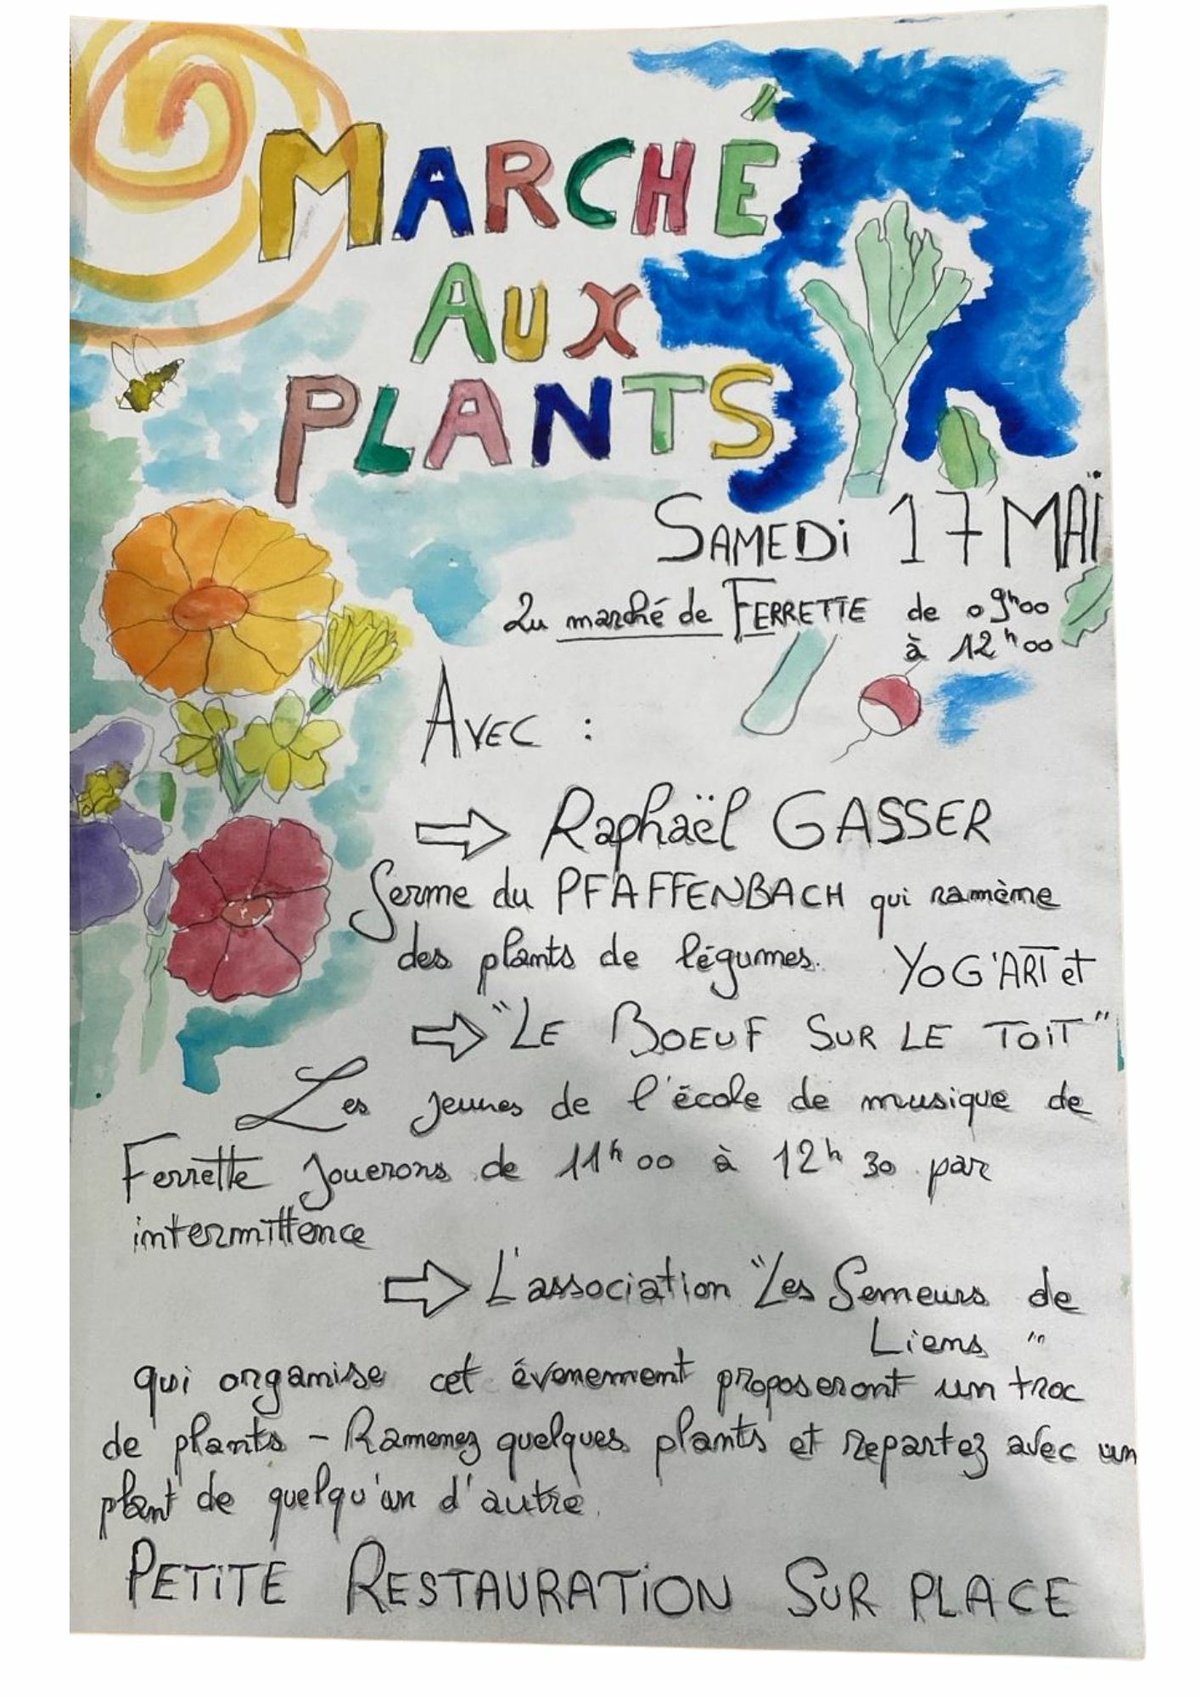 MARCHÉ
AUX
PLANTS
SAMEDI 17 MAI
au marché de FERRETTE de 09h00
à 12h00
AVEC :
⇨ Raphaël GASSER
ferme du PFAFFENBACH qui ramène
des plants de légumes. YOG'ART et
⇨ "LE BOEUF SUR LE TOIT"
Les jeunes de l'école de musique de
Ferrette joueront de 11h00 à 12h30 par
intermittence
⇨ L'association "Les Semeurs de
Liens"
qui organise cet évenement proposeront un troc
de plants - Ramenez quelques plants et repartez avec un
plant de quelqu'un d'autre.
PETITE RESTAURATION SUR PLACE